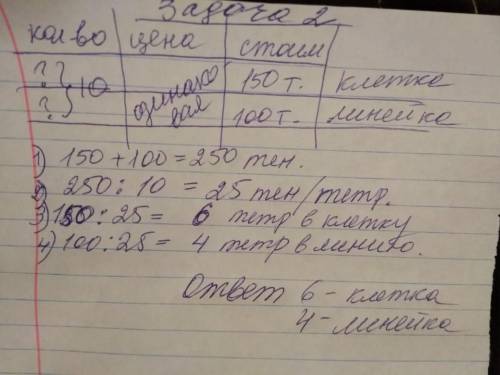 Задача 2.
кол-во цена стоим
? } 10 одинаковая 150 т. клетка
? 100 т. линейка
1) 150 + 100 = 250 тен.
2) 250 : 10 = 25 тен/тетр.
3) 150 : 25 = 6 тетр в клетку
4) 100 : 25 = 4 тетр в линию.
Ответ 6 - клетка
4 - линейка